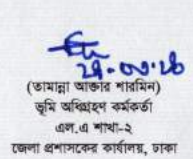 (তামান্না আক্তার শারমিন)
ভূমি অধিগ্রহণ কর্মকর্তা
এল.এ শাখা-২
জেলা প্রশাসকের কার্যালয়, ঢাকা